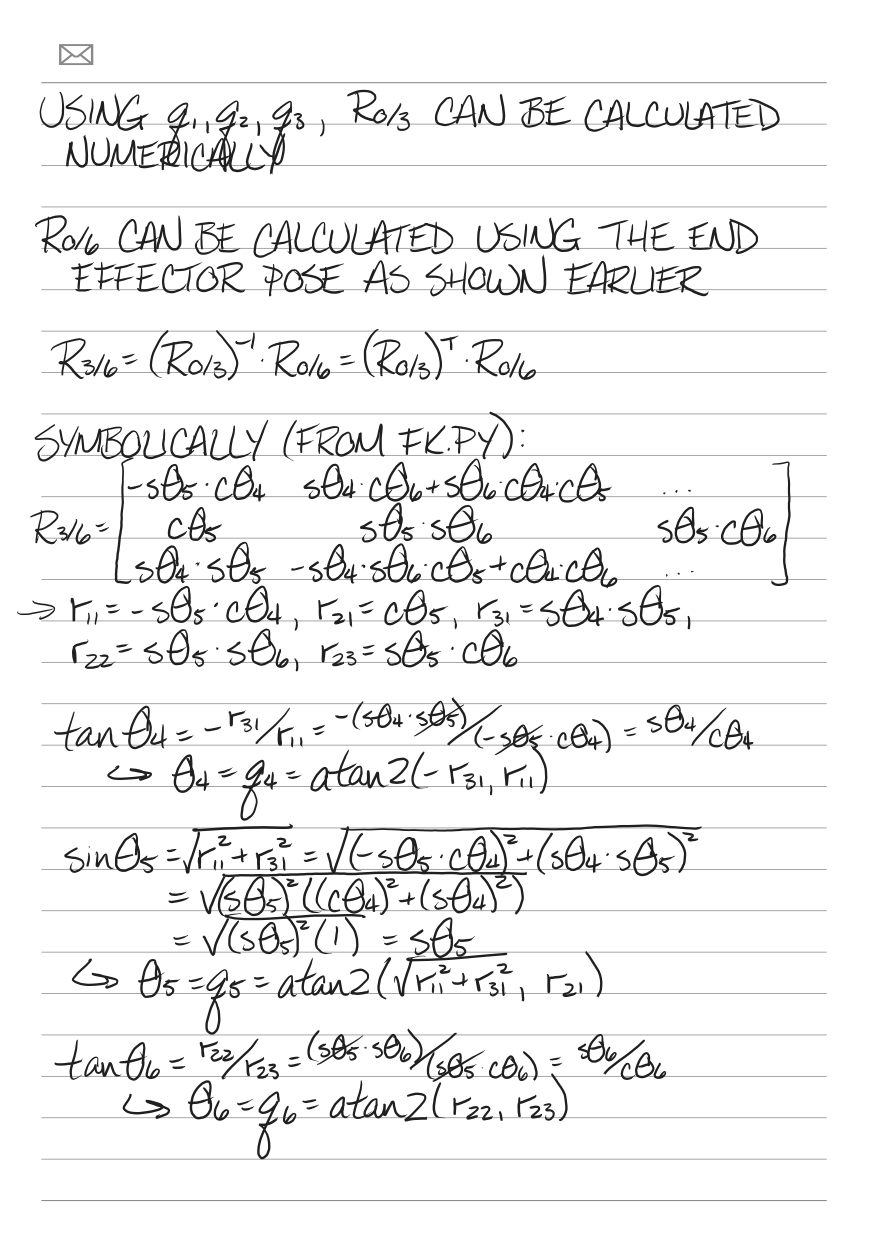 USING q₁, q₂, q₃, R0/3 CAN BE CALCULATED
NUMERICALLY
R0/6 CAN BE CALCULATED USING THE END
EFFECTOR POSE AS SHOWN EARLIER
R3/6 = (R0/3)⁻¹ · R0/6 = (R0/3)ᵀ · R0/6
SYMBOLICALLY (FROM FK.PY):
-sθ₅·cθ₄ sθ₄·cθ₆+sθ₆·cθ₄·cθ₅ ...
R3/6 = cθ₅ sθ₅·sθ₆ sθ₅·cθ₆
sθ₄·sθ₅ -sθ₄·sθ₆·cθ₅+cθ₄·cθ₆ ...
→ r₁₁ = -sθ₅·cθ₄, r₂₁ = cθ₅, r₃₁ = sθ₄·sθ₅,
r₂₂ = sθ₅·sθ₆, r₂₃ = sθ₅·cθ₆
tanθ₄ = -r₃₁/r₁₁ = -(sθ₄·sθ₅)/(-sθ₅·cθ₄) = sθ₄/cθ₄
↪ θ₄ = q₄ = atan2(-r₃₁, r₁₁)
sinθ₅ = √(r₁₁²+r₃₁²) = √((-sθ₅·cθ₄)²+(sθ₄·sθ₅)²)
= √((sθ₅)²((cθ₄)²+(sθ₄)²))
= √((sθ₅)²(1)) = sθ₅
↪ θ₅ = q₅ = atan2(√(r₁₁²+r₃₁²), r₂₁)
tanθ₆ = r₂₂/r₂₃ = (sθ₅·sθ₆)/(sθ₅·cθ₆) = sθ₆/cθ₆
↪ θ₆ = q₆ = atan2(r₂₂, r₂₃)